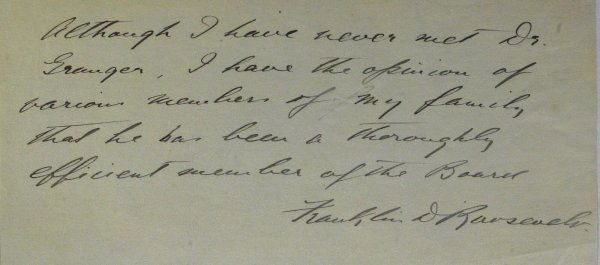 Although I have never met Dr.
Granger, I have the opinion of
various members of my family
that he has been a thoroughly
efficient member of the Board
Franklin D Roosevelt.